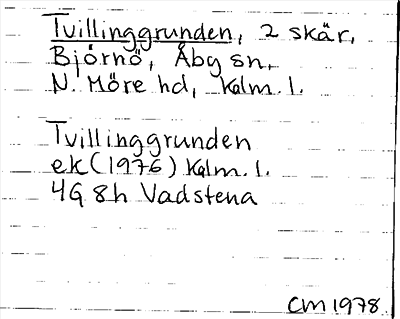 Tvillinggrunden, 2 skär,
Björnö, Åby sn,
N. Möre hd, Kalm. l.
Tvillinggrunden
ek (1976) Kalm. l.
4G 8h Vadstena
CM 1978